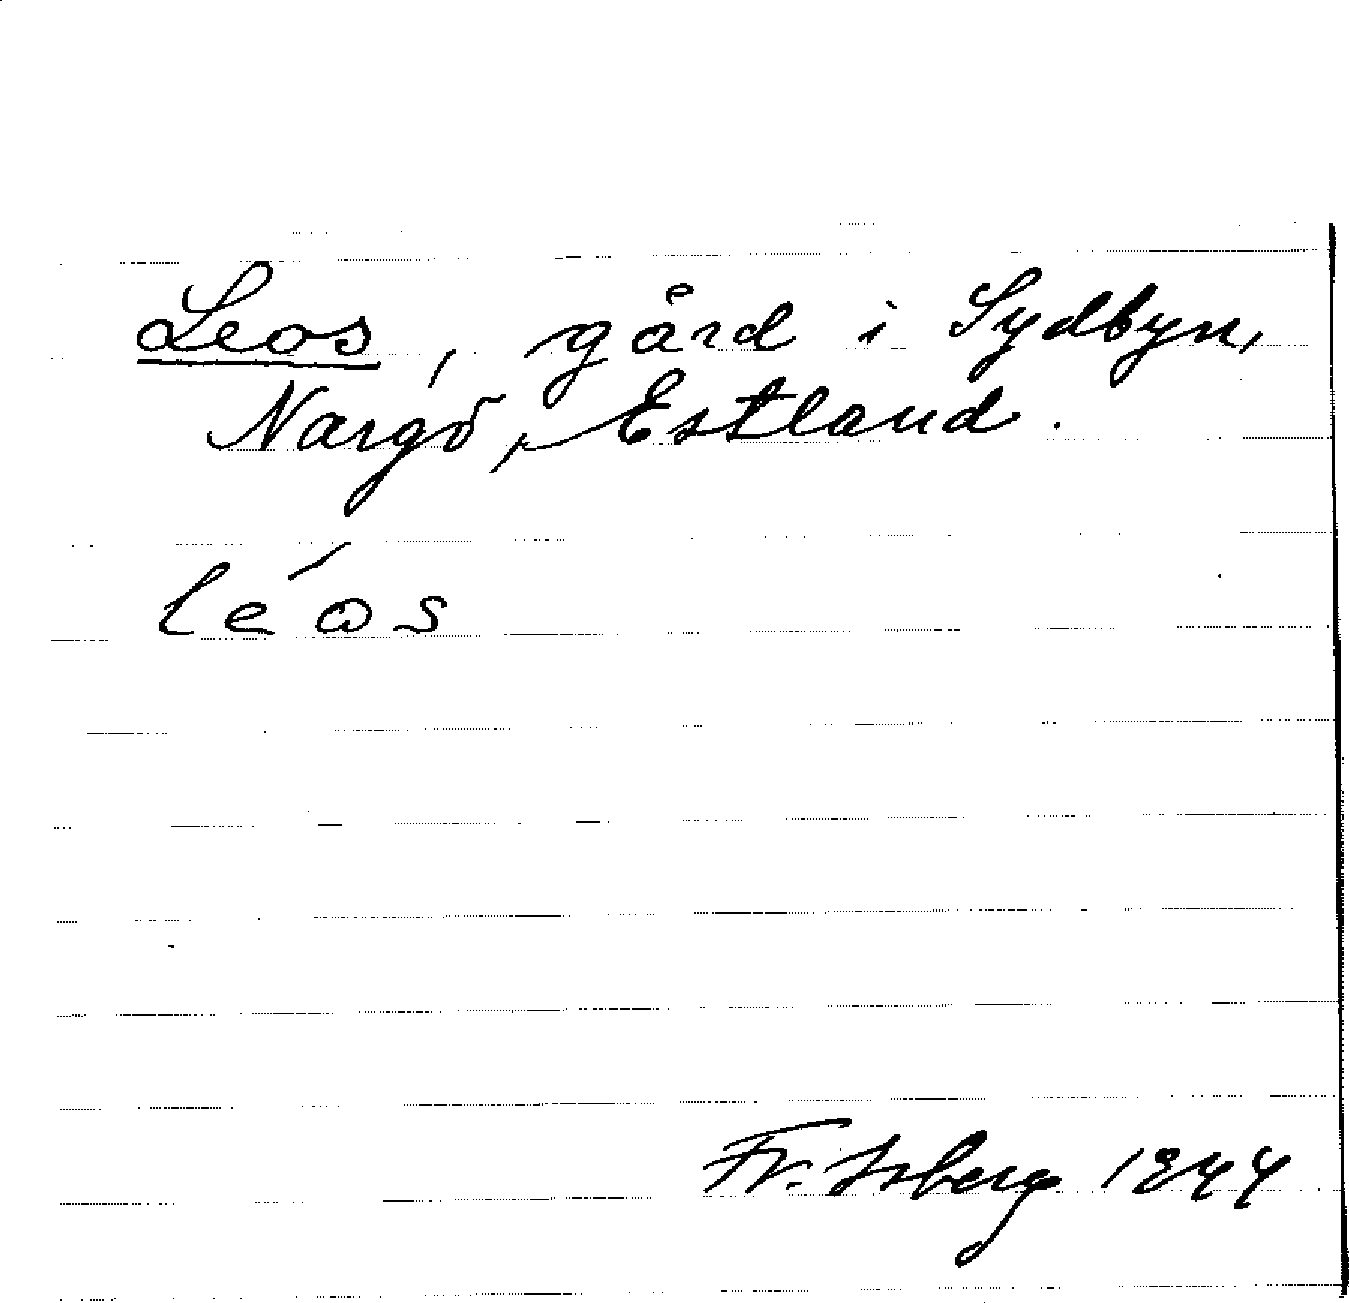 Leos, gård i Sydbyn,
Nargö, Estland.
le´os
Fr. Isberg 1944